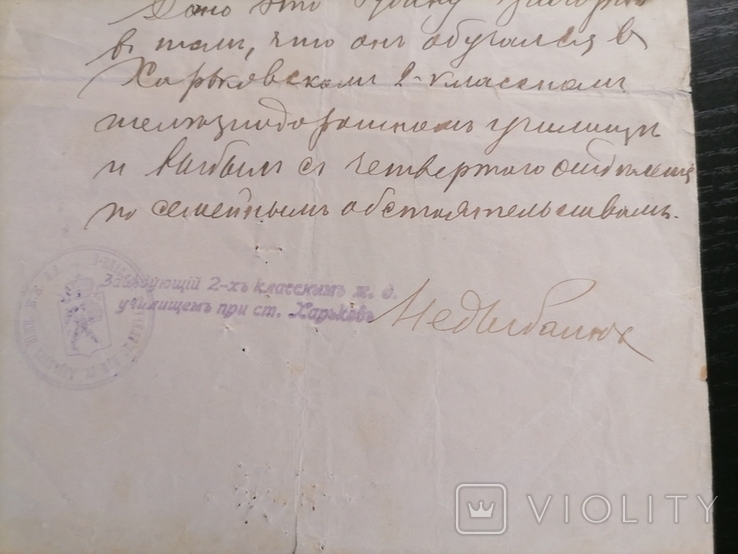 Дано это
в том, что он обучался в
Харьковском 2-классном
железнодорожном училищи
и выбыл с четвертого отделения
по семейным обстоятельствам.
Завѣдующій 2-хъ класснымъ ж. д.
училищемъ при ст. Харьковъ
VIOLITY